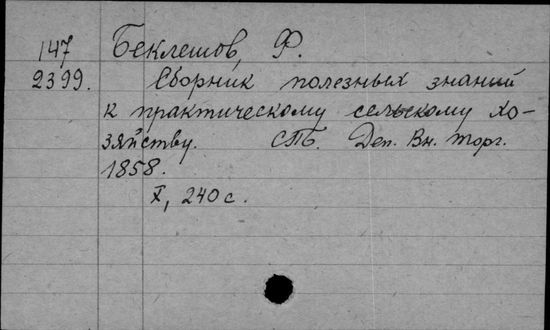 147 Беклешов, Ф.
2399. Сборник полезных знаний
к практическому сельскому хо-
зяйству. СПБ. Деп. Вн. торг.
1858.
X, 240 с.